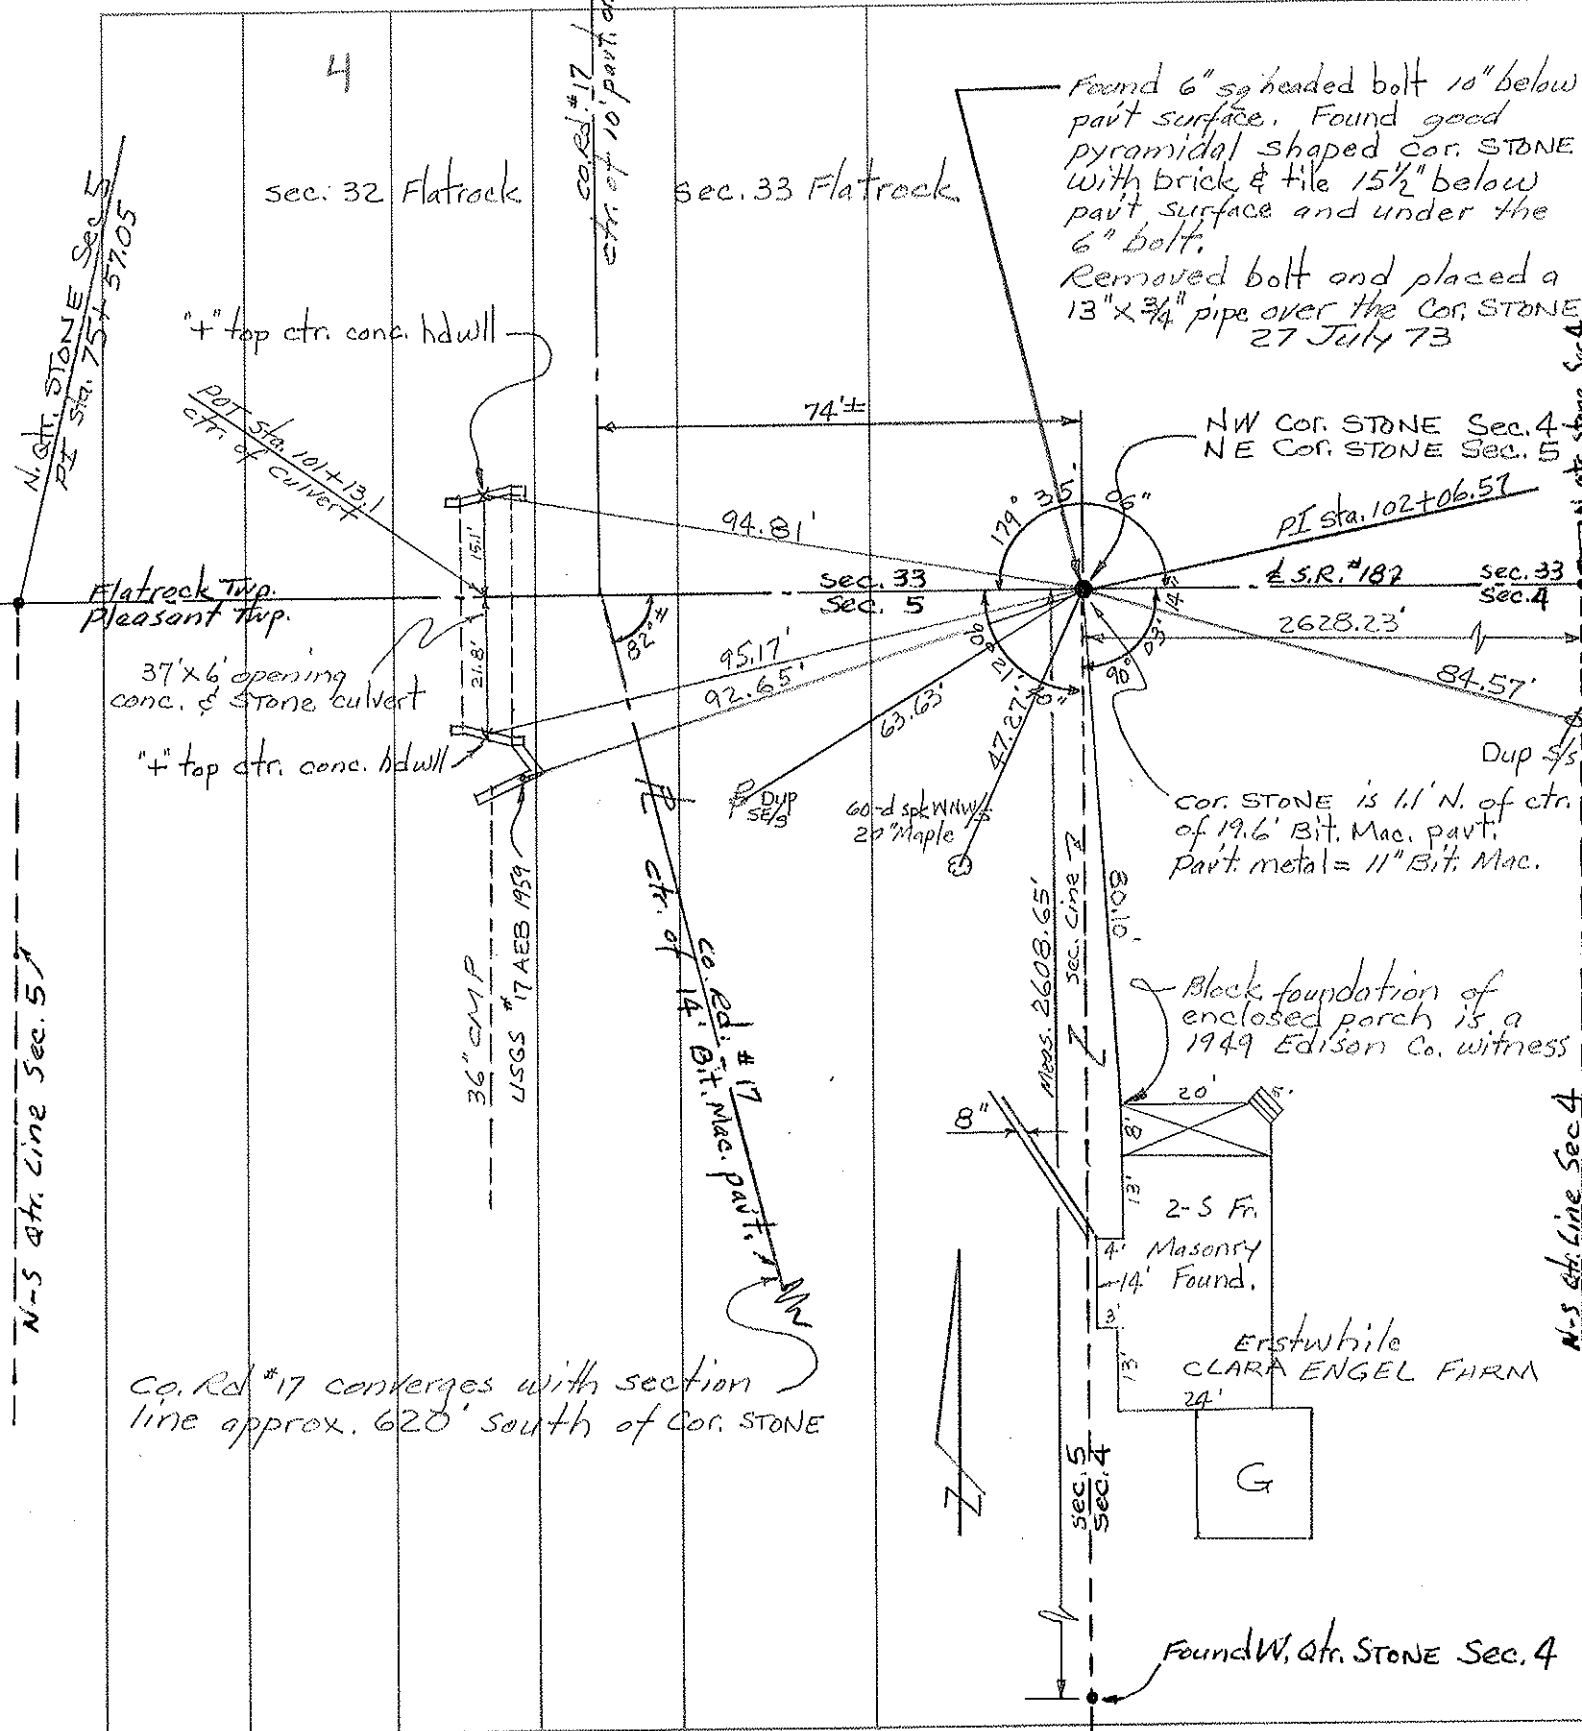 4
co. Rd. #17
ctr. of 10' pavt.
Found 6" sq headed bolt 10" below
pav't surface. Found good
pyramidal shaped cor. STONE
with brick & tile 15½" below
pav't surface and under the
6" bolt.
Removed bolt and placed a
13" x ¾" pipe over the Cor. STONE
27 July 73
sec. 32 Flatrock
sec. 33 Flatrock
N. Qtr. STONE Sec. 5
PI Sta. 75+57.05
"+" top ctr. conc. hdwll
POT Sta. 101+13.1
ctr. of culvert
74'±
NW Cor. STONE Sec. 4
NE Cor. STONE Sec. 5
N. qtr. stone Sec 4
179° 35' 06"
PI Sta. 102+06.57
94.81'
15.1'
Flatrock Twp.
Pleasant Twp.
sec. 33
Sec. 5
℄ S.R. #187
Sec. 33
Sec. 4
82°±
90° 21'
90° 03' 14"
2628.23'
84.57'
Dup S/s
37' x 6' opening
conc. & Stone culvert
21.8'
95.17'
92.65'
63.63'
47.27'
"+" top ctr. conc. hdwll
Dup
SE/s
60-d spk WNW/s
20" Maple
cor. STONE is 1.1' N. of ctr.
of 19.6' Bit. Mac. pavt.
Pav't. metal = 11" Bit. Mac.
36" CMP
USGS #17 AEB 1959
ctr. of 14' Bit. Mac. pav't.
Co. Rd. #17
Meas. 2608.65'
Sec. Line
80.10'
Block foundation of
enclosed porch is a
1949 Edison Co. witness
N-S Qtr. Line Sec. 5
N-S Qtr. Line Sec 4
8"
20'
5'
8'
13'
2-S Fr.
Masonry
Found.
4'
14'
3'
13'
24'
Erstwhile
CLARA ENGEL FARM
G
Co. Rd #17 converges with section
line approx. 620' south of Cor. STONE
Sec. 5
Sec. 4
Found W. Qtr. STONE Sec. 4